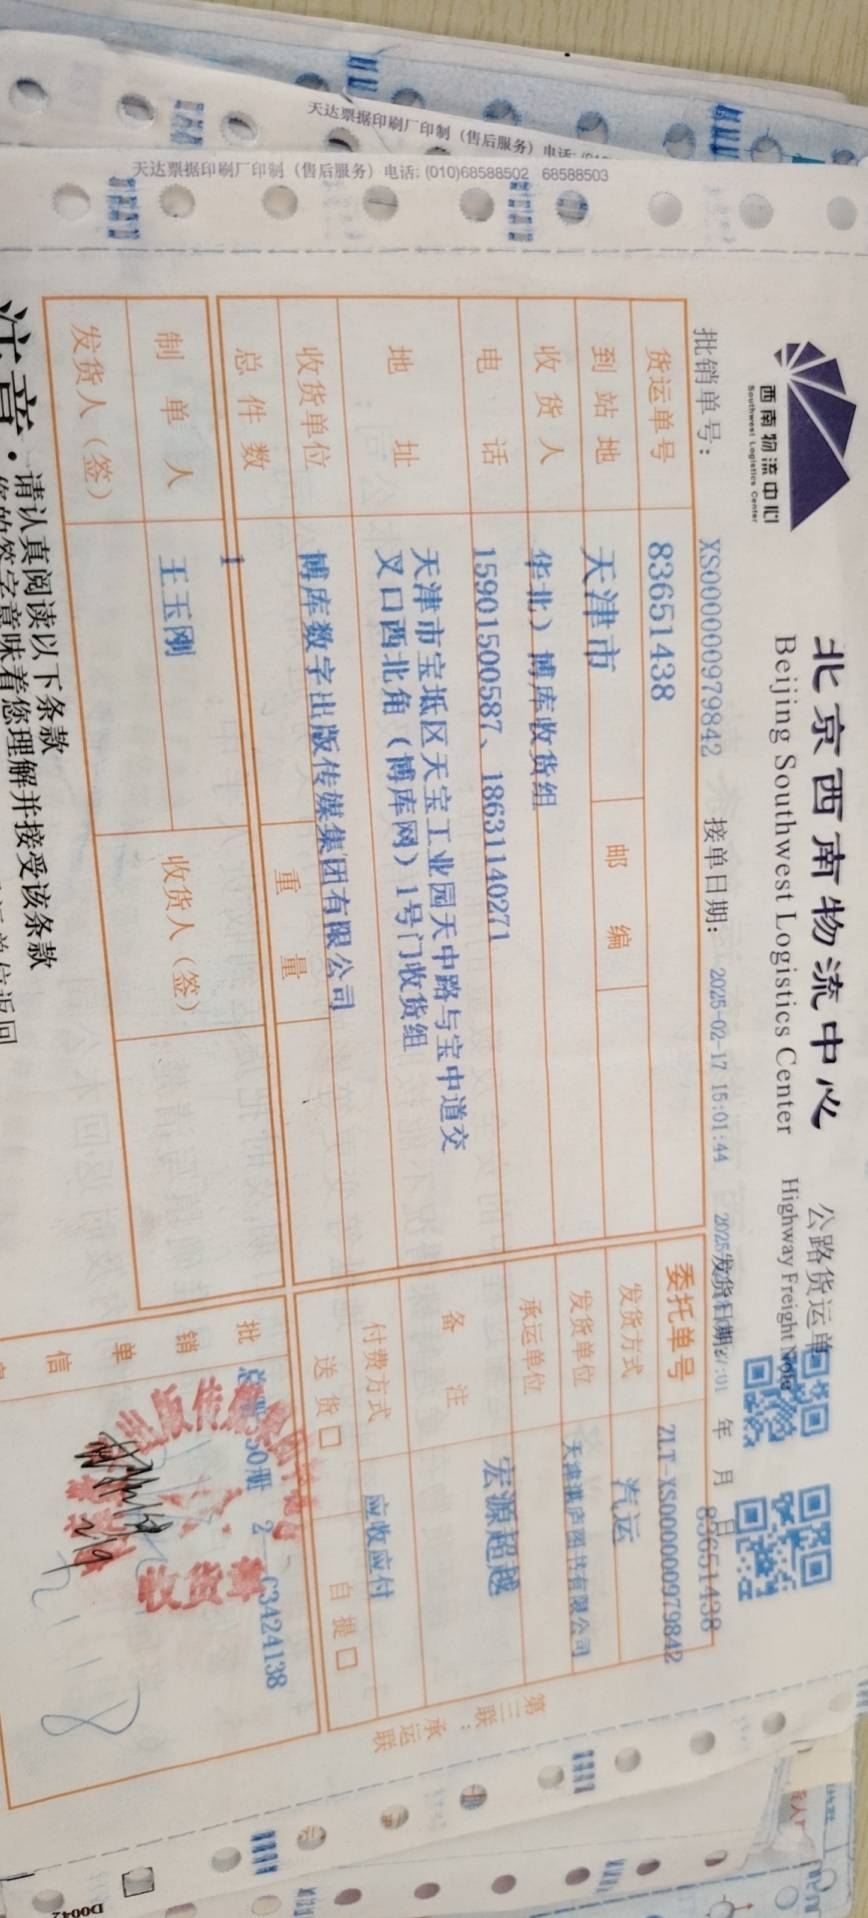 天达票据印刷厂印制（售后服务）电话:
天达票据印刷厂印制（售后服务）电话: (010)68588502 68588503
西南物流中心
Southwest Logistics Center
北京西南物流中心 公路货运单
Beijing Southwest Logistics Center Highway Freight Note
批销单号： XS000000979842 接单日期： 2025-02-17 15:01:44 发货日期： 年 月 日
83651438
货运单号 83651438 委托单号 ZLT-XS000000979842
到站地 天津市 邮编 发货方式 汽运
收货人 华北）博库收货组 发货单位
电话 15901500587、18631140271 承运单位 宏源超越
地址 天津市宝坻区天宝工业园天中路与宝中道交
叉口西北角（博库网）1号门收货组
备注
收货单位 博库数字出版传媒集团有限公司 付费方式 应收应付
总件数 1 重量 送货□ 自提□
制单人 王玉刚 收货人（签） 批销单信
发货人（签）
63424138
收货章
第三联：承运联
注意·请认真阅读以下条款
您的签字意味着您理解并接受该条款